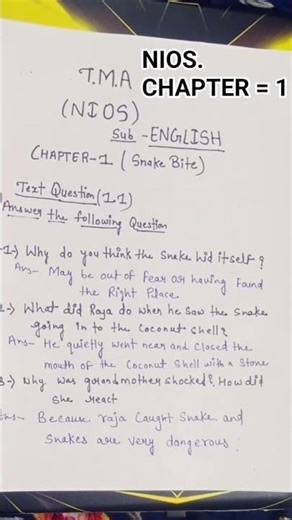 NIOS.
CHAPTER = 1
T.M.A
(NIOS)
Sub - ENGLISH
CHAPTER-1 ( Snake Bite)
Text Question (1.1)
Answer the following Question
1-) Why do you think the Snake hid itself ?
Ans- May be out of Fear or having Found
the Right Place
2-) What did Raja do when he saw the Snake
going in to the coconut shell?
Ans- He quietly went near and closed the
mouth of the Coconut Shell with a Stone
3-) Why was grandmother shocked? How did
She react
Ans- Because raja caught Snake and
Snakes are very dangerous.